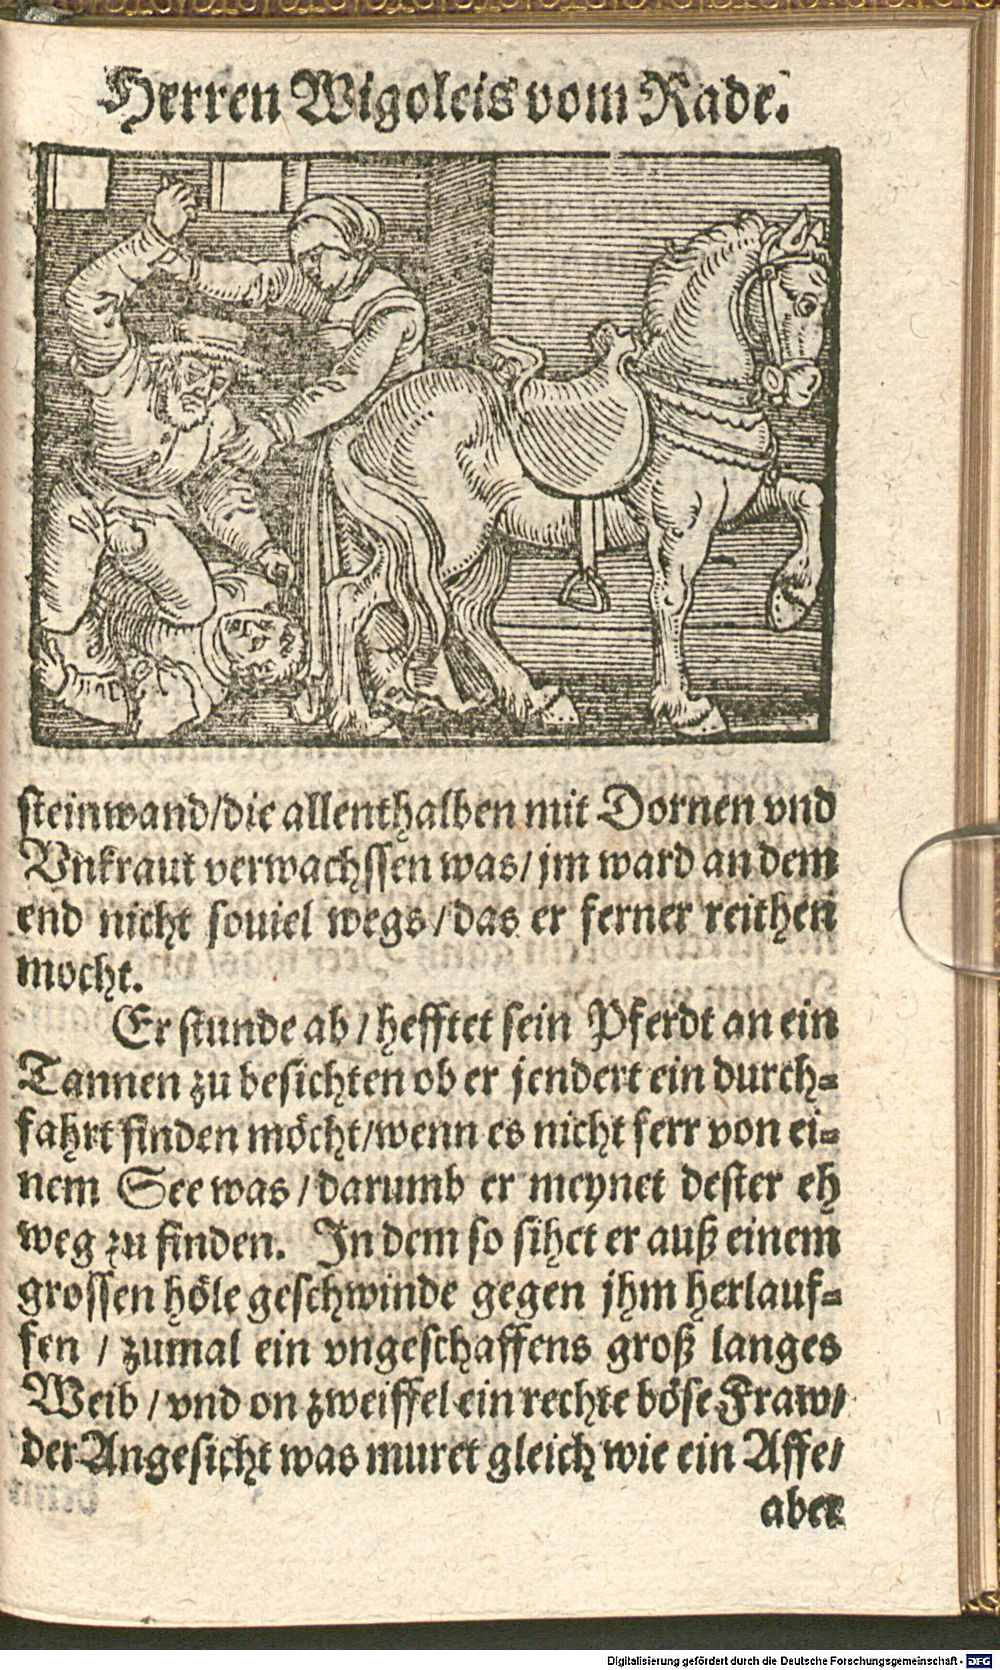 Herren Wigoleis vom Rade.
steinwand/die allenthalben mit Dornen vnd
Vnkraut verwachssen was/jm ward an dem
end nicht souiel wegs/das er ferner reithen
mocht.
Er stunde ab/hefftet sein Pferdt an ein
Tannen zu besichten ob er jendert ein durch-
fahrt finden möcht/wenn es nicht ferr von ei-
nem See was/darumb er meynet dester eh
weg zu finden. In dem so sihet er auß einem
grossen höle geschwinde gegen jhm herlauf-
fen/zumal ein vngeschaffens groß langes
Weib/vnd on zweiffel ein rechte böse Fraw/
der Angesicht was muret gleich wie ein Affe/
aber
Digitalisierung gefördert durch die Deutsche Forschungsgemeinschaft - DFG